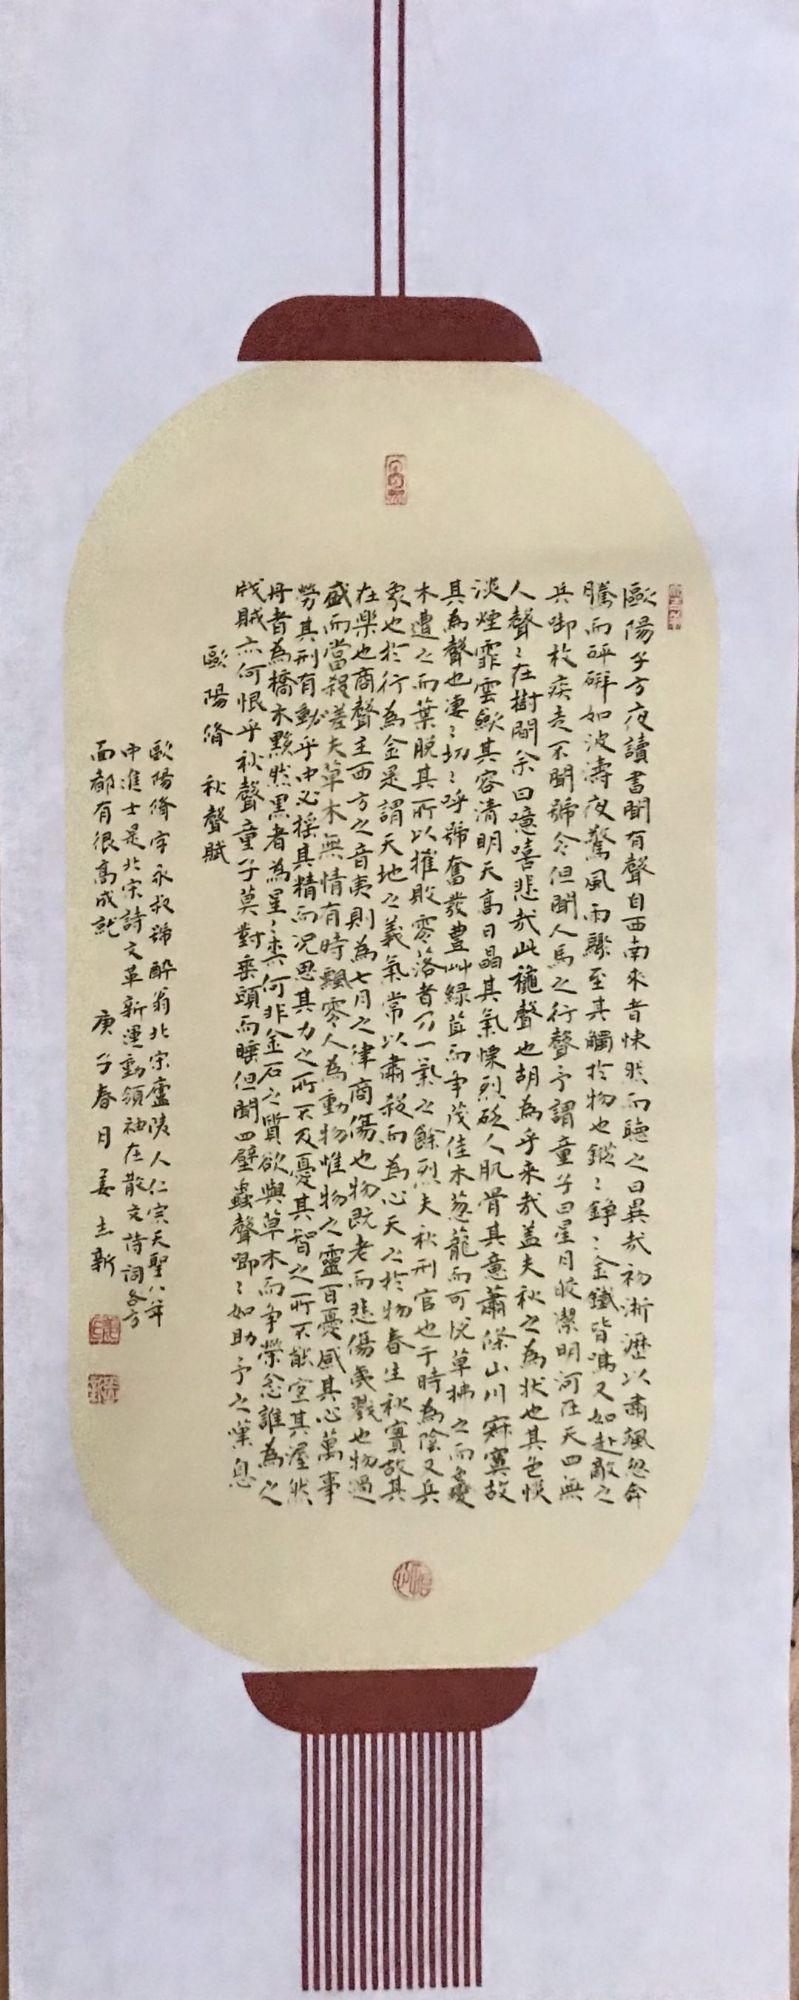 歐陽子方夜讀書聞有聲自西南來者悚然而聽之曰異哉初淅瀝以蕭颯忽奔
騰而砰湃如波濤夜驚風雨驟至其觸於物也鏦〻錚〻金鐵皆鳴又如赴敵之
兵啣枚疾走不聞號令但聞人馬之行聲予謂童子曰星月皎潔明河在天四無
人聲〻在樹間余曰噫嘻悲哉此秋聲也胡為乎来哉盖夫秋之為狀也其色慘
淡煙霏雲斂其容清明天高日晶其氣慄烈砭人肌骨其意蕭條山川寂寞故
其為聲也凄〻切〻呼號奮發豊艸綠茸而争茂佳木葱蘢而可悅草拂之而色變
木遭之而葉脫其所以摧敗零落者乃一氣之餘烈夫秋刑官也于時為陰又兵
象也於行為金是謂天地之義氣常以肅殺而為心天之於物春生秋實故其
在樂也商聲主西方之音夷則為七月之律商傷也物既老而悲傷夷戮也物過
盛而當殺嗟夫草木無情有時飄零人為動物惟物之靈百憂感其心萬事
勞其形有動乎中必搖其精而況思其力之所不及憂其智之所不能宜其渥然
丹者為槁木黟然黑者為星〻奈何非金石之質欲與草木而争榮念誰為之
戕賊亦何恨乎秋聲童子莫對垂頭而睡但聞四壁蟲聲唧〻如助予之嘆息
歐陽脩 秋聲賦
歐陽脩字永叔號醉翁北宋廬陵人仁宗天聖八年
中進士是北宋詩文革新運動領袖在散文詩詞各方
面都有很高成就 庚子春月 姜志新